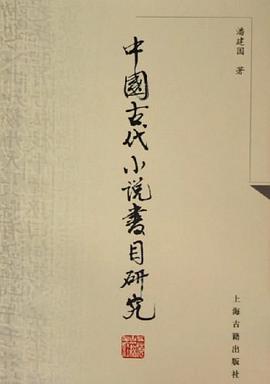 潘建国 著
中國古代小说書目研究
上海古籍出版社